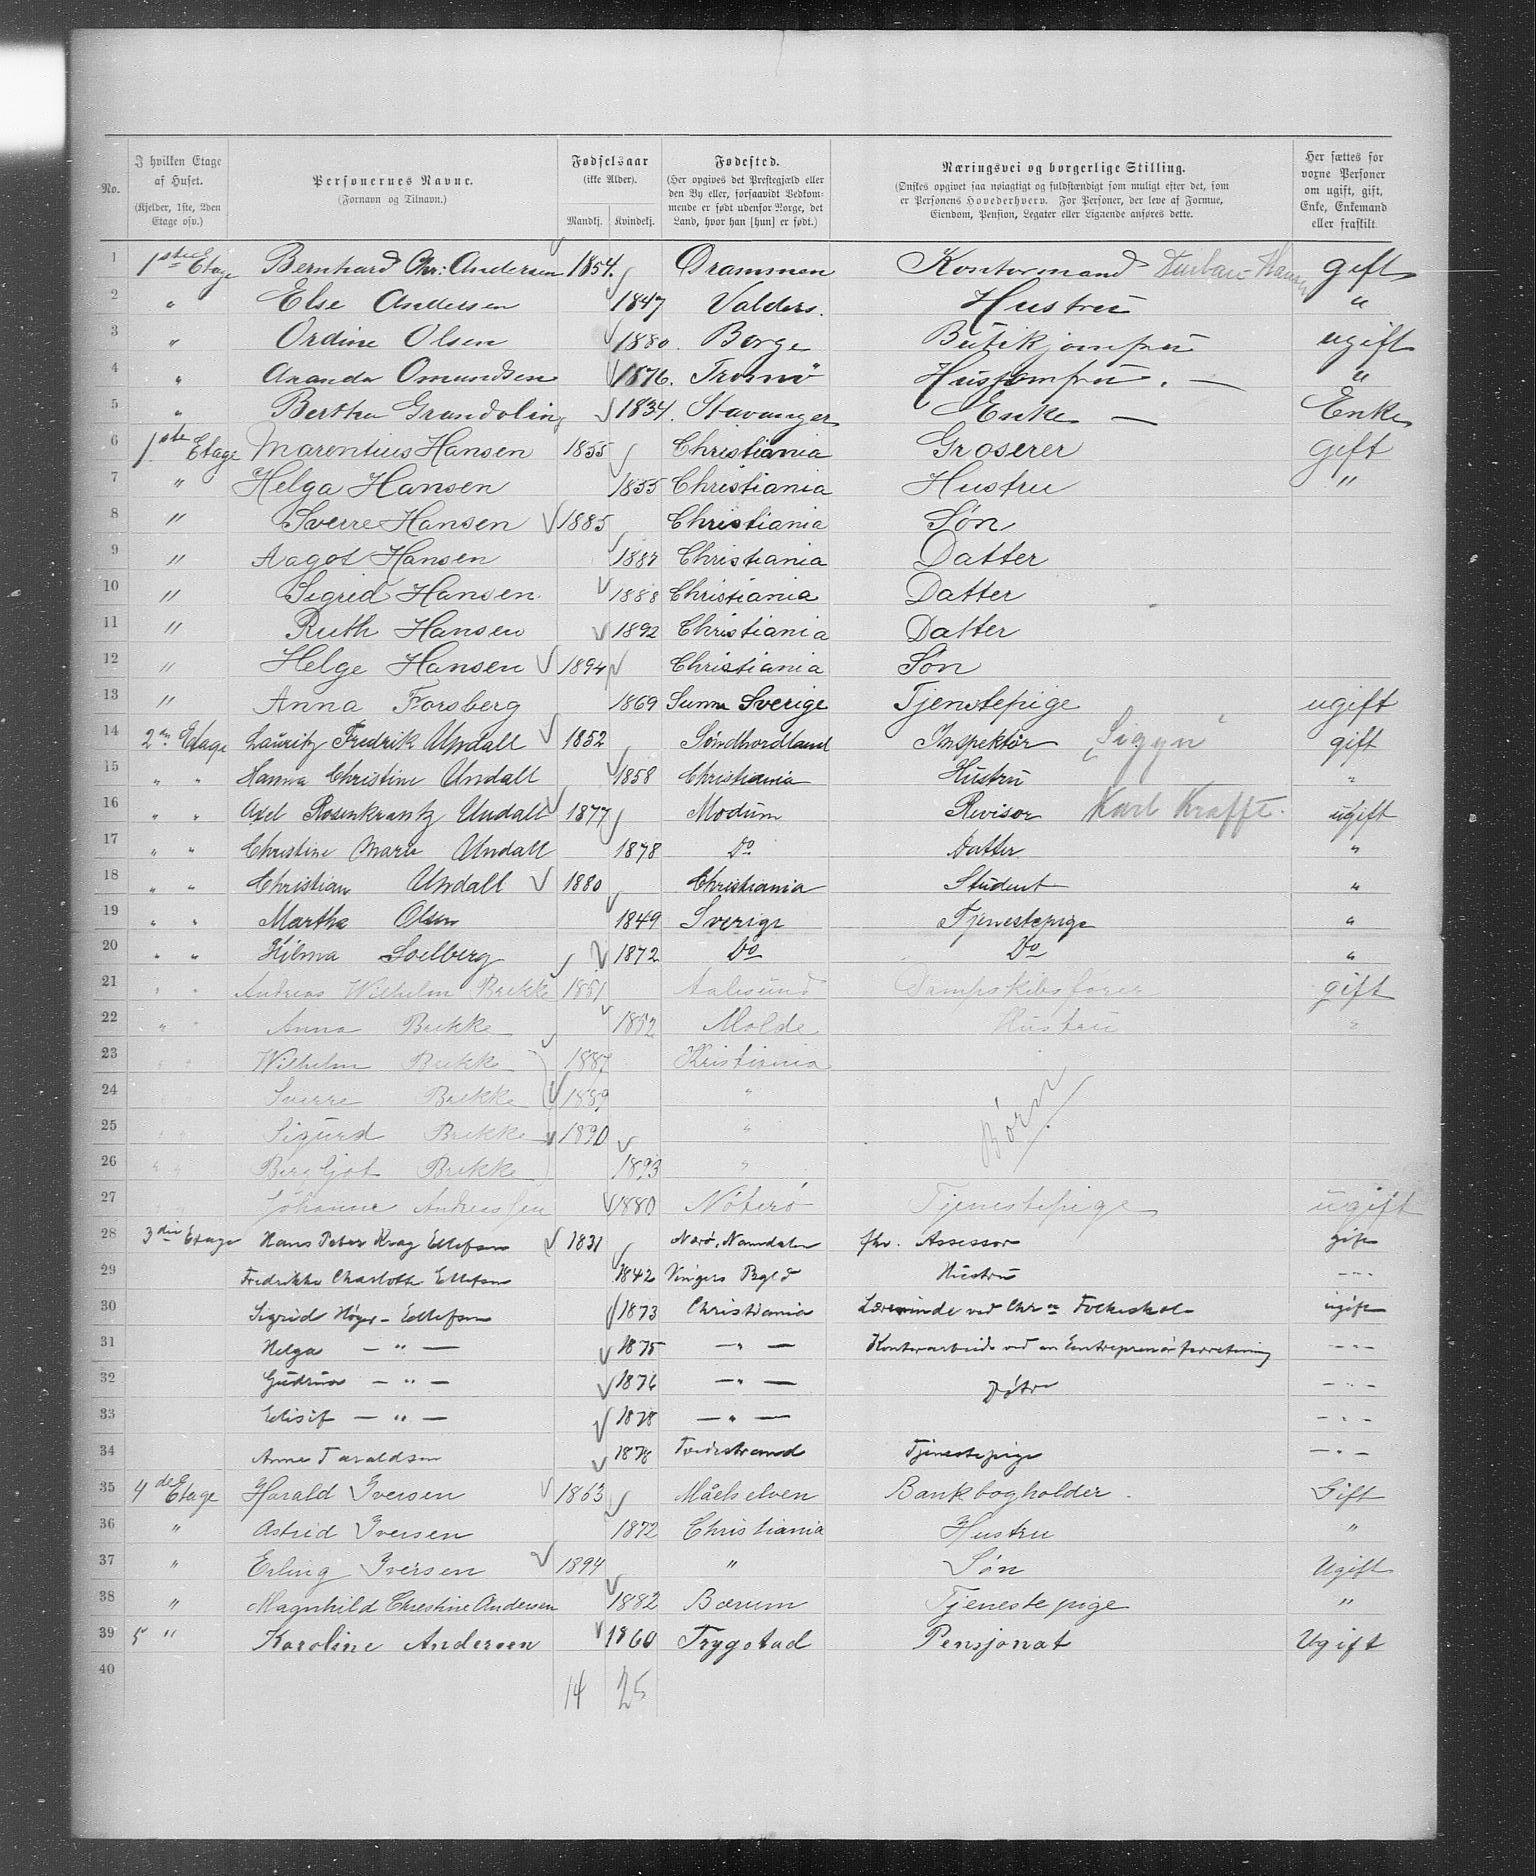 No. I hvilken Etage af Huset. (Kjelder, 1ste, 2den Etage osv.) Personernes Navne. (Fornavn og Tilnavn.) Fødselsaar (ikke Alder). Mandkj. Kvindekj. Fødested. (Her opgives det Prestegjæld eller den By eller, forsaavidt Vedkommende er født udenfor Norge, det Land, hvor han [hun] er født.) Næringsvei og borgerlige Stilling. (Ønskes opgivet saa nøiagtigt og fuldstændigt som muligt efter det, som er Personens Hovederhverv. For Personer, der leve af Formue, Eiendom, Pension, Legater eller Ligæende anføres dette. Her sættes for voxne Personer om ugift, gift, Enke, Enkemand eller fraskilt.
1 1ste Etage Bernhard Chr: Andersen 1854. Drammen Kontormand gift
2 " Else Andersen 1847 Valders. Hustru "
3 " Ordine Olsen 1880. Borge Butikjomfru ugift
4 " Ananda Omundsen 1876. Tromsø Husjomfru. — "
5 " Bertha 1834. Stavanger Enke — Enke
6 1ste Etage Marentius Hansen 1855 Christiania Groserer gift
7 " Helga Hansen 1855 Christiania Hustru "
8 " Sverre Hansen 1885 Christiania Søn
9 " Aagot Hansen 1887 Christiania Datter
10 " Sigrid Hansen 1888 Christiania Datter
11 " Ruth Hansen 1892 Christiania Datter
12 " Helge Hansen 1894 Christiania Søn
13 " Anna Forsberg 1869 Sunne Sverige Tjenstepige ugift
14 2den Etage Lauritz Fredrik Undall 1852 Søndhordland Inspektør Sigyn gift
15 " " Hanna Christine Undall 1858 Christiania Hustru "
16 " " Axel Rosenkrantz Undall 1877 Modum Revisor Karl Krafft. ugift
17 " " Christine Marie Undall 1878 Do Datter "
18 " " Christian Undall 1880 Christiania Student "
19 " " Marthe Olsen 1849 Sverige Tjenestepige "
20 " " Hilma Solberg 1872 Do Do "
21 " " Andreas Wilhelm Brekke 1851 Aalesund Dampskibsfører gift
22 " " Anna Brekke 1852 Molde Hustru "
23 " " Wilhelm Brekke 1887 Kristiania
24 Sverre Brekke 1889 "
25 " " Sigurd Brekke 1890 " Børn
26 " " Bergljot Brekke 1893 "
27 " " Johanne Andreassen 1880 Nøterø Tjenestepige ugift
28 3die Etage Hans Peter Krag Ellefsen 1831 Nærø, Namdalen fhv. Assessor gift
29 Fredrikke Charlotte Ellefsen 1842 Vingers Pgld Hustru — " —
30 Sigrid Høyer-Ellefsen 1873 Christiania Lærerinde ved Chr.a Folkeskole ugift
31 Helga — " — 1875 — " — Kontorarbeide ved en Entreprenørforretning — " —
32 Gudrun — " — 1876 — " — Døtre — " —
33 Edisif — " — 1878 — " — — " —
34 Anne Taraldsen 1878 Tvedestrand Tjenestepige — " —
35 4de Etage Harald Iversen 1863 Målselven Bankbogholder. Gift
36 " Astrid Iversen 1872 Christiania Hustru "
37 " Erling Iversen 1894 " Søn Ugift
38 " Magnhild Chrestine Andersen 1882 Bærum Tjenestepige "
39 5 " Karoline Andersen 1860 Trygstad Pensjonat Ugift
40
14 25